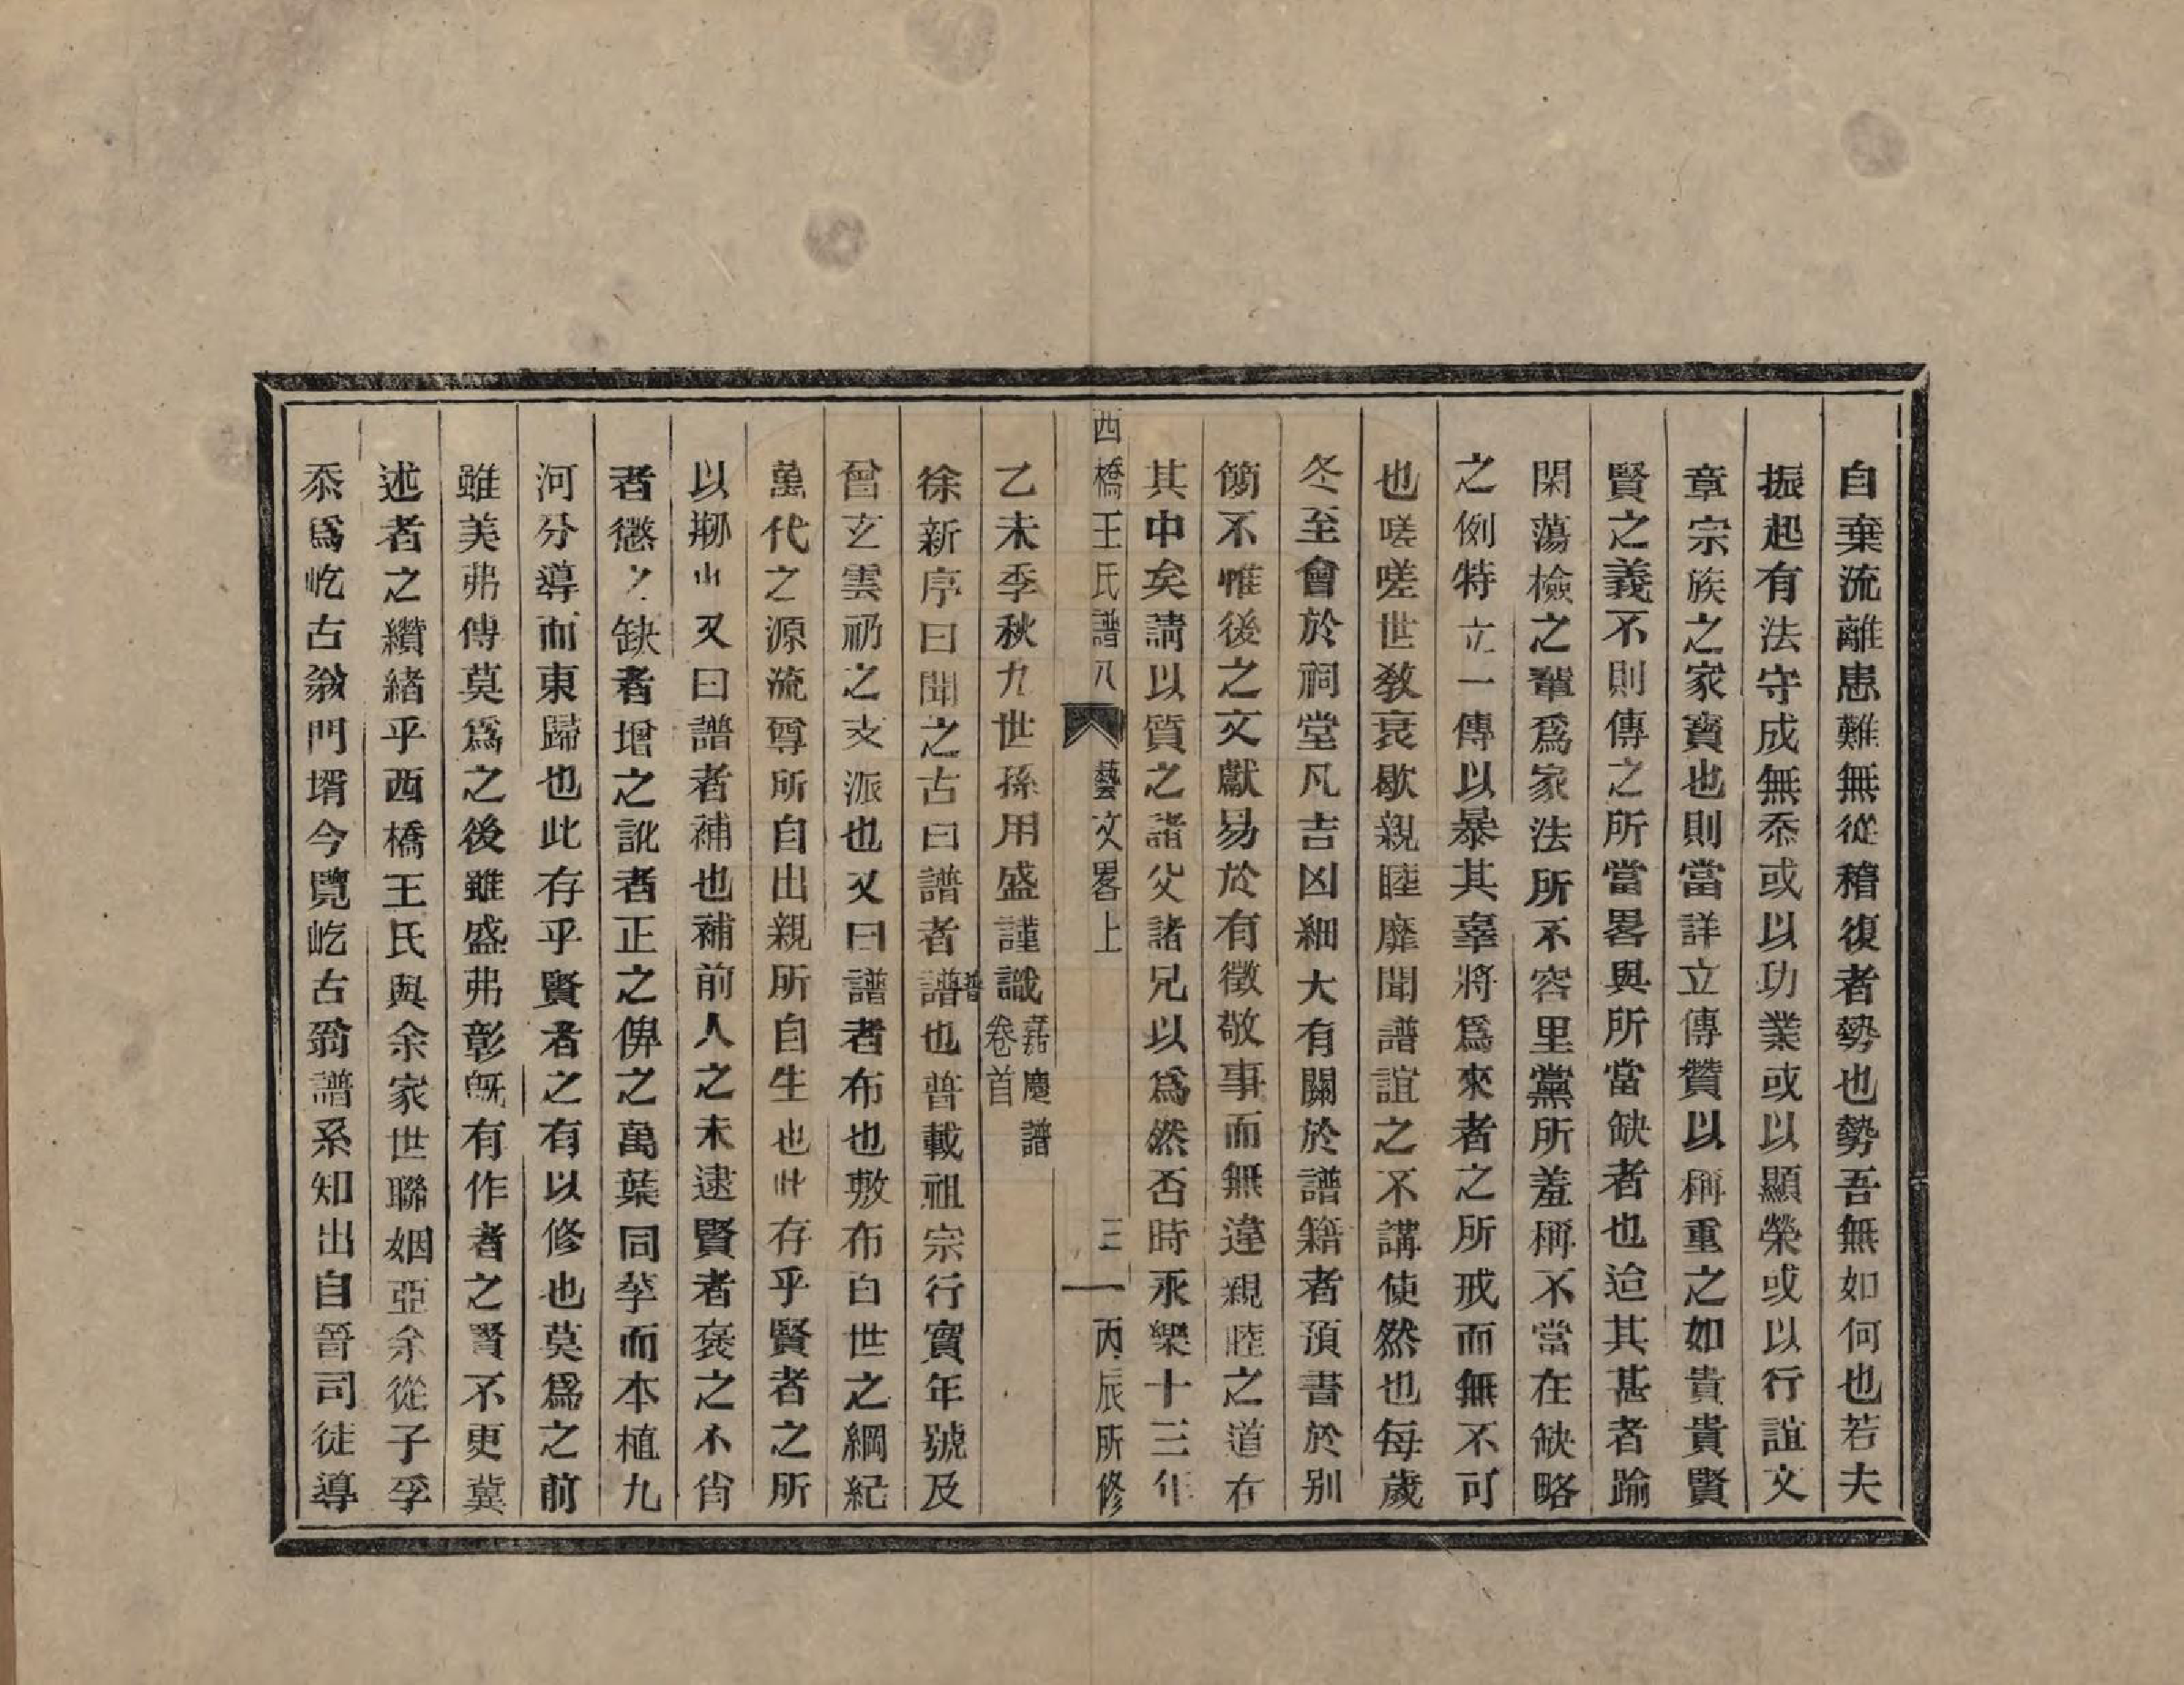 自棄流離患難無從稽復者勢也勢吾無如何也若夫
振起有法守成無忝或以功業或以顯榮或以行誼文
章宗族之家寶也則當詳立傳贊以稱重之如貴貴賢
賢之義不則傳之所當畧與所當缺者也迨其甚者踰
閑蕩檢之輩爲家法所不容里黨所羞稱不當在缺略
之例特立一傳以暴其辜將爲來者之所戒而無不可
也嗟嗟世教衰歇親睦靡聞譜誼之不講使然也每歲
冬至會於祠堂凡吉凶細大有關於譜籍者預書於別
簡不惟後之文獻易於有徵敬事而無違親睦之道在
其中矣請以質之諸父諸兄以爲然否時永樂十三年
西橋王氏譜八 藝文畧上 三 丙辰所修
乙未季秋九世孫用盛謹識嘉慶譜卷首
徐新序曰聞之古曰譜者譜普也普載祖宗行實年號及
曾玄雲礽之支派也又曰譜者布也敷布百世之綱紀
萬代之源流尊所自出親所自生也此存乎賢者之所
以刱出又曰譜者補也補前人之未逮賢者褒之不肖
者懲之缺者增之訛者正之俾之萬葉同莩而本植九
河分導而東歸也此存乎賢者之有以修也莫爲之前
雖美弗傳莫爲之後雖盛弗彰旣有作者之賢不更冀
述者之纘緒乎西橋王氏與余家世聯姻亞余從子孚
忝爲屹古翁門壻今覽屹古翁譜系知出自晉司徒導